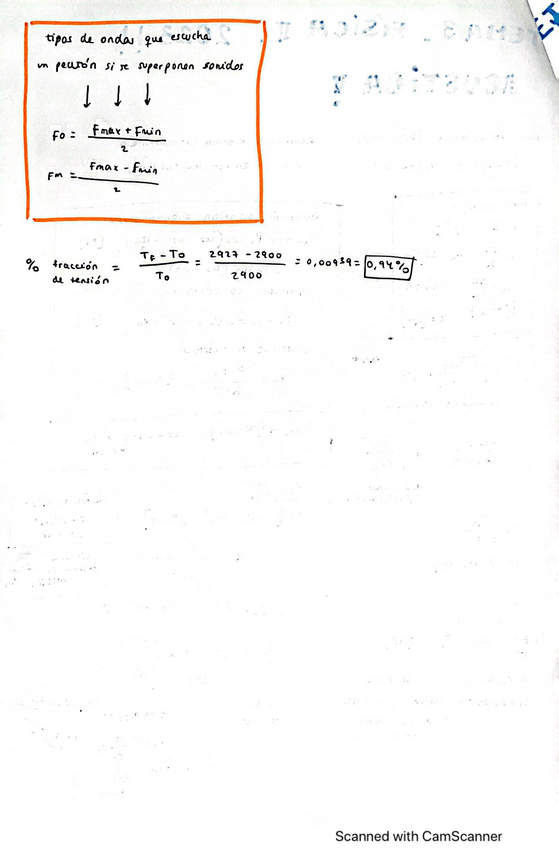 tipos de ondas que escucha
un peatón si se superponen sonidos
↓ ↓ ↓
Fo = Fmax + Fmin / 2
Fm = Fmax - Fmin / 2
% fracción de tensión = TF - To / To = 2927 - 2900 / 2900 = 0,00939 = 0,94%
Scanned with CamScanner